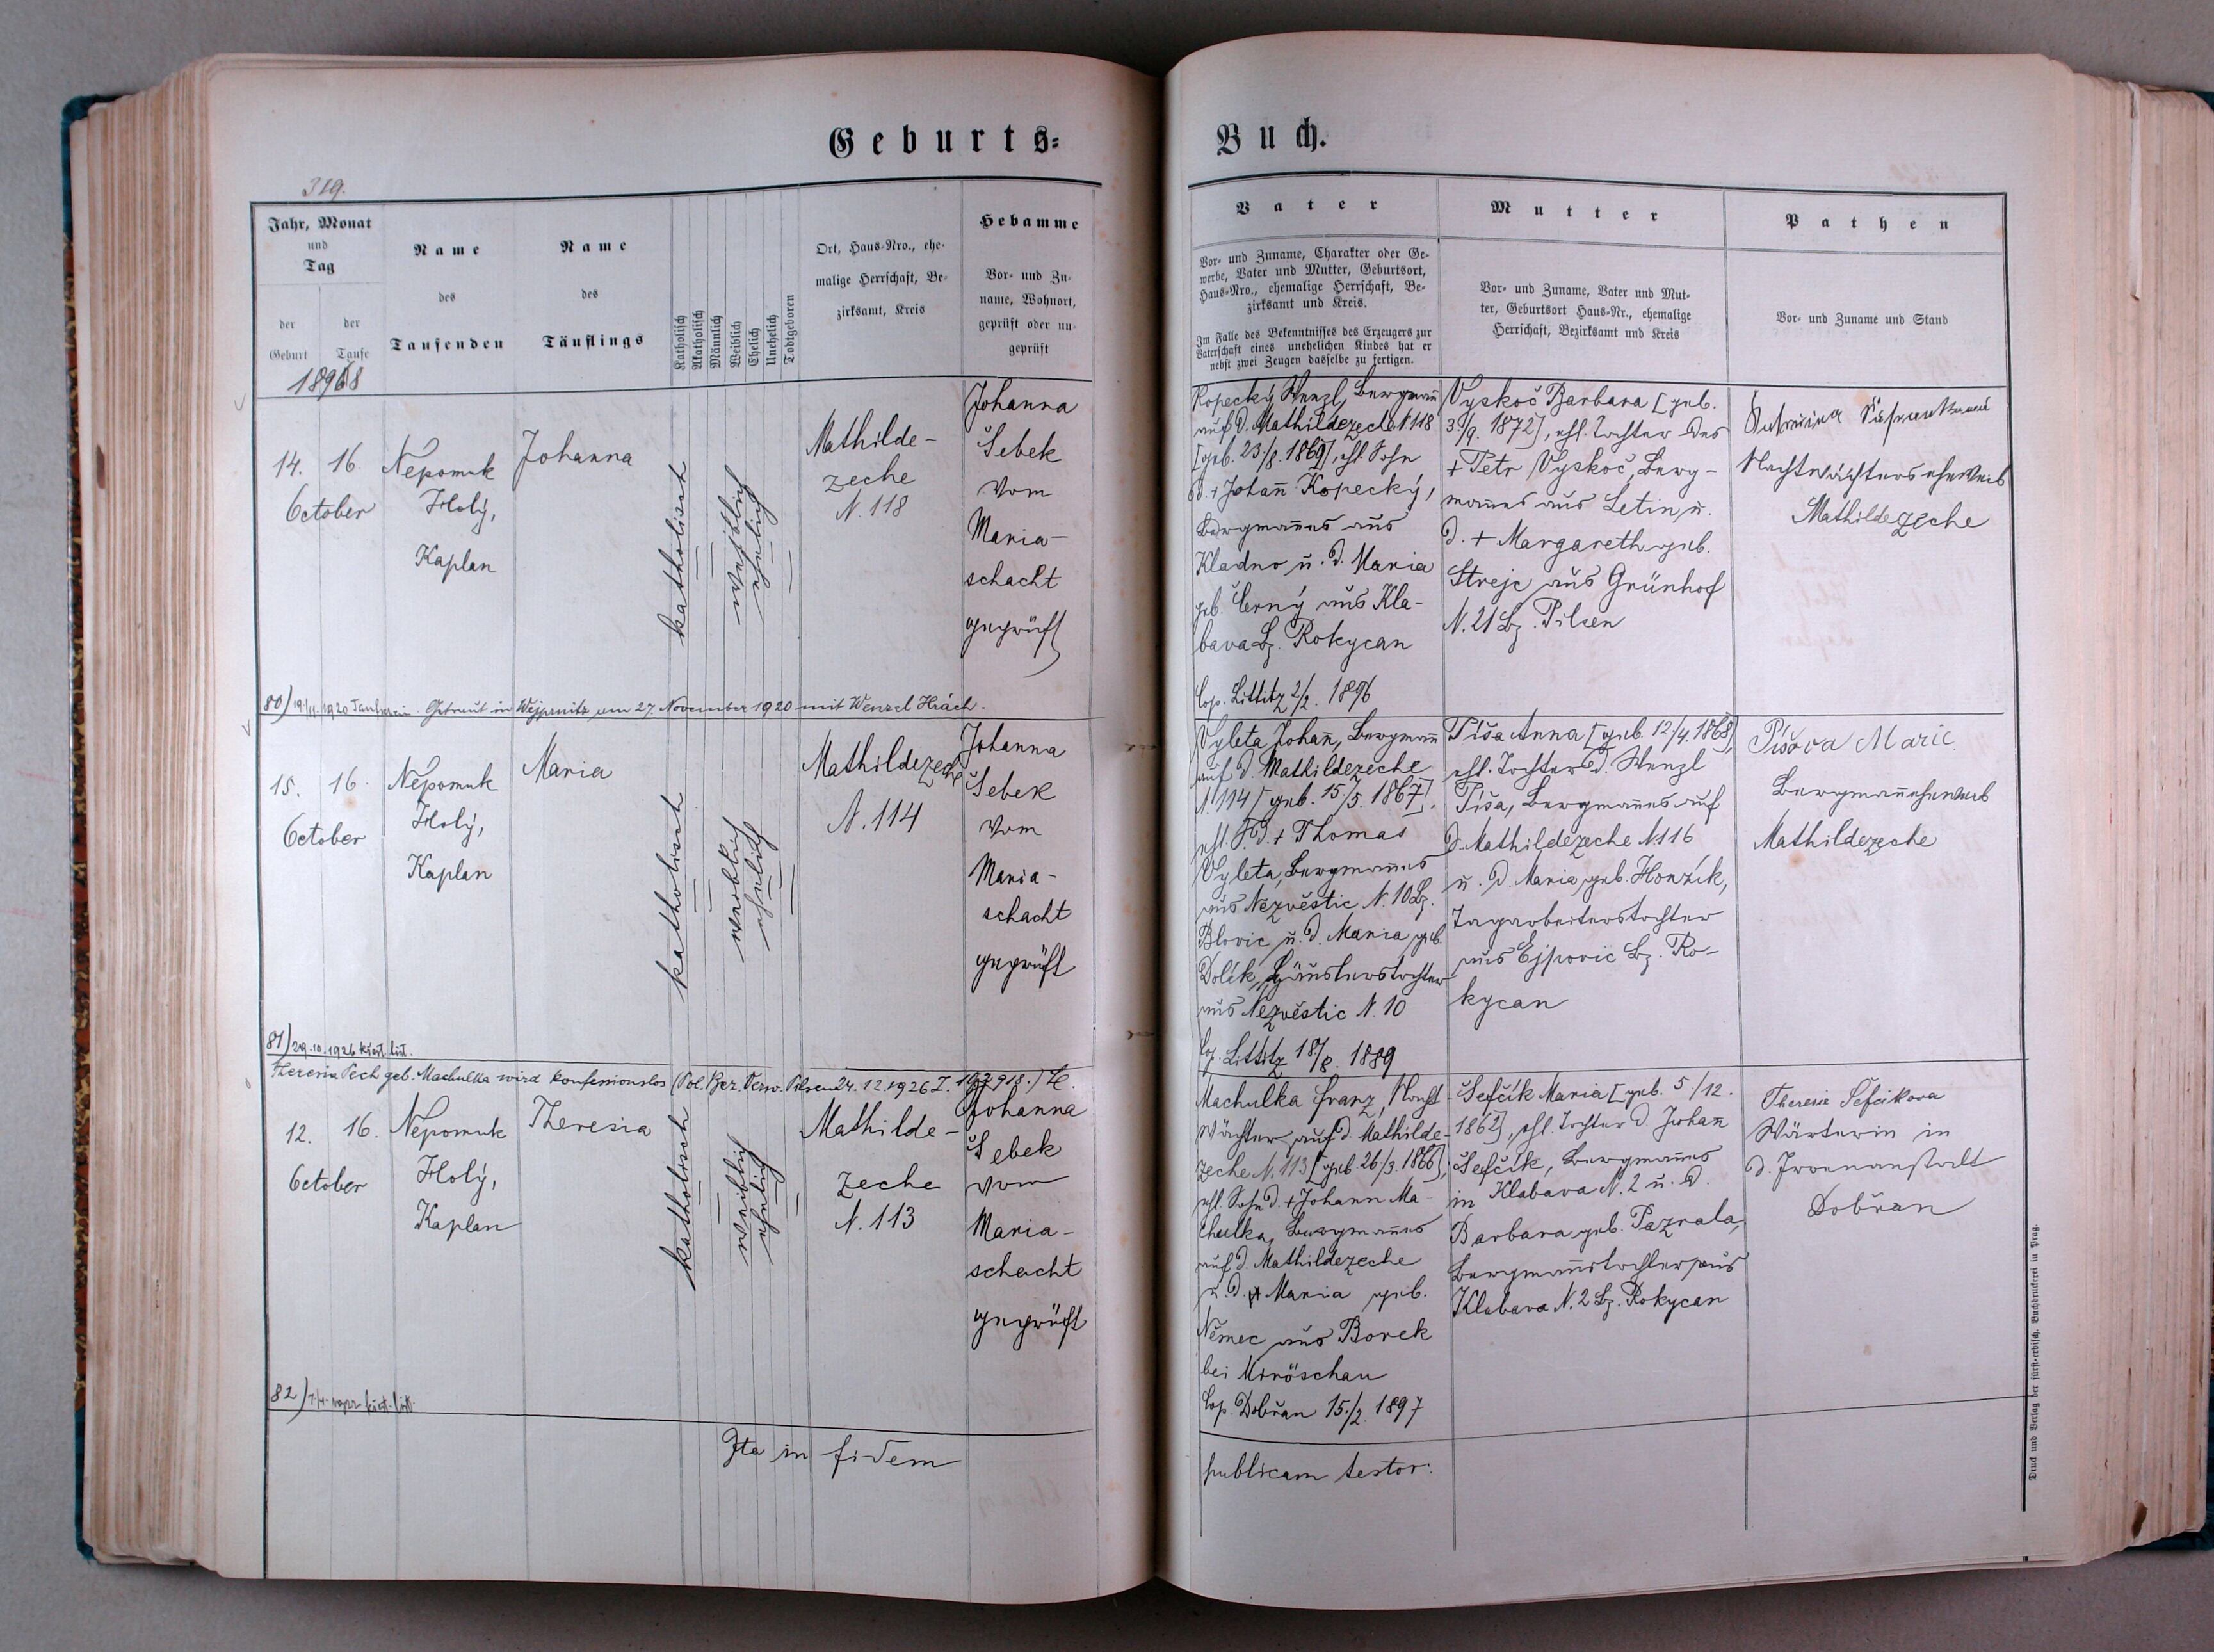 Geburts=
Buch.
319.
Jahr, Monat
und
Tag
der
Geburt
der
Taufe
Name
des
Taufenden
Name
des
Täuflings
Katholisch
Akatholisch
Männlich
Weiblich
Ehelich
Unehelich
Todtgeboren
Ort, Haus-Nro., ehe-
malige Herrschaft, Be-
zirksamt, Kreis
Hebamme
Vor- und Zu-
name, Wohnort,
geprüft oder un-
geprüft
Vater
Vor- und Zuname, Charakter oder Ge-
werbe, Vater und Mutter, Geburtsort,
Haus-Nro., ehemalige Herrschaft, Be-
zirksamt und Kreis.
Im Falle des Bekenntnisses des Erzeugers zur
Vaterschaft eines unehelichen Kindes hat er
nebst zwei Zeugen dasselbe zu fertigen.
Mutter
Vor- und Zuname, Vater und Mut-
ter, Geburtsort Haus-Nr., ehemalige
Herrschaft, Bezirksamt und Kreis
Pathen
Vor- und Zuname und Stand
1898
14. 16.
October
Nepomuk
Holý,
Kaplan
Johanna
katholisch
weiblich
ehelich
Mathilde-
zeche
N. 118
Johanna
Šebek
vom
Maria-
schacht
geprüft
Kopecký Wenzl, Bergmañ
auf d. Mathildezeche N. 118
[geb. 23/8. 1869], ehl. Sohn
d. + Johañ Kopecký,
Bergmañes aus
Kladno u. d. Maria
geb. Černý aus Kla-
bava Bz. Rokycan
Cop. Littitz 2/2. 1896
Vyskoč Barbara [geb.
3./9. 1872], ehl. Tochter des
+ Petr Vyskoč, Berg-
mañes aus Letin, u.
d. + Margareth geb.
Strejc aus Grünhof
N. 21 Bz. Pilsen
Nachtwächters eheweib
Mathildezeche
80) 19./11. 1920 Taufschein. Getraut in Wejprnitz am 27. November 1920 mit Wenzel Hrách.
15. 16.
October
Nepomuk
Holý,
Kaplan
Maria
katholisch
weiblich
ehelich
Mathildezeche
N. 114
Johanna
Šebek
vom
Maria-
schacht
geprüft
Vyleta Johañ, Bergmañ
auf d. Mathildezeche
N. 114 [geb. 15/5. 1867],
ehl. S. d. + Thomas
Vyleta, Bergmañes
aus Nezvěstic N. 10 Bz.
Blovic u. d. Maria geb.
Dolek, Häuslerstochter
aus Nezvěstic N. 10
Cop. Littitz 18/8. 1889
Píša Anna [geb. 12/4. 1868],
ehl. Tochter d. Wenzl
Píša, Bergmañes auf
d. Mathildezeche N. 116
u. d. Maria geb. Honzík,
Tagarbeiterstochter
aus Ejpovic Bz. Ro-
kycan
Píšova Marie
Bergmañeheweib
Mathildezeche
81) 29.10.1926 křest. list.
Theresia Pech geb. Machulka wird konfessionslos (Pol. Bez. Verw. Pilsen 24. 12. 1926 Z.
12. 16.
October
Nepomuk
Holý,
Kaplan
Theresia
katholisch
weiblich
ehelich
Mathilde-
zeche
N. 113
Johanna
Šebek
vom
Maria-
schacht
geprüft
Machulka Franz, Nacht-
wächter auf d. Mathilde-
zeche N. 113 [geb. 26/3. 1866],
ehl. Sohn d. + Johann Ma-
chulka, Bergmañes
auf d. Mathildezeche
u. d. Maria geb.
Němec aus Borek
bei Miröschau
Cop. Dobřan 15./2. 1897
Šefčík Maria [geb. 5./12.
1862], ehl. Tochter d. Johañ
Šefčík, Bergmañes
in Klabava N. 2 u. d.
Barbara geb. Pazrala,
Bergmañstochter aus
Klabava N. 2 Bz. Rokycan
Theresie Šefcikova
Wärterin in
d. Irrenanstalt
Dobřan
82)
Ita in fidem
publicam testor.
Druck und Verlag der fürst-erzbisch. Buchdruckerei in Prag.